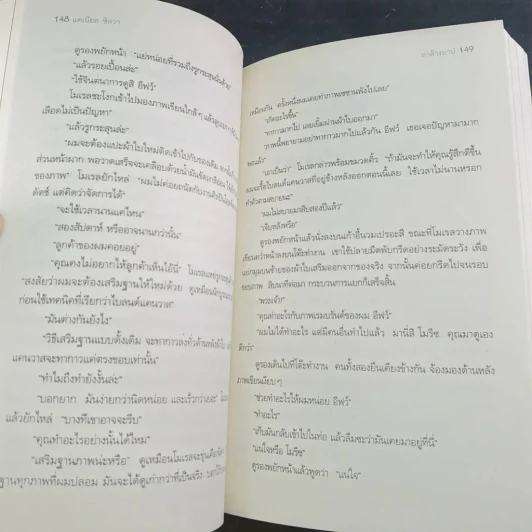 148 แดเนียล ซิลวา
ดูรองพยักหน้า "แย่หน่อยที่รวมถึงรูกระสุนนั่นด้วย"
"แล้วรอยเปื้อนล่ะ"
"ใช้จินตนาการดูสิ อีฟว์"
โมเรลชะโงกเข้าไปมองภาพเขียนใกล้ๆ
เลือดไม่เป็นปัญหา"
"แล้วรูกระสุนล่ะ"
"ผมจะต้องแปะผ้าใบใหม่ติดเข้าไปกับของเดิม
ส่วนหน้าผาก พอวาดเสร็จจะเคลือบด้วยน้ำมันชักเงาสีอ่อน
ของภาพ" โมเรลยักไหล่ "ผมไม่ค่อยถนัดกับงาน
ดัตช์ แต่คิดว่าจัดการได้"
"จะใช้เวลานานแค่ไหน"
"สองสัปดาห์ หรืออาจนานกว่านั้น"
"ลูกค้าของผมคอยอยู่"
"คุณคงไม่อยากให้ลูกค้าเห็นไอ้นี่" โมเรล
"สงสัยว่าผมจะต้องเสริมฐานให้ใหม่ด้วย ดูเหมือน
ก่อนใช้เทคนิคที่เรียกว่าไบลนด์แคนวาส"
"มันต่างกันยังไง"
"วิธีเสริมฐานแบบดั้งเดิม จะทากาวลงทั่วด้านหลัง
แคนวาสจะทากาวแค่ตรงขอบเท่านั้น"
"ทำไมถึงทำยังงั้นล่ะ"
"บอกยาก มันง่ายกว่านิดหน่อย และเร็วกว่าเยอะ"
แล้วยักไหล่ "บางทีเขาอาจจะรีบ"
"คุณทำอะไรอย่างนั้นได้ไหม"
"เสริมฐานภาพน่ะหรือ" ดูเหมือนโมเรลจะขุ่นเคือง
ฐานทุกภาพที่ผมปลอม มันจะได้ดูเก่ากว่าที่เป็นจริง
149
เหมือนกัน ครั้งหนึ่งผมเคยทำภาพเซซานพังไปเลย"
"เกิดอะไรขึ้น"
"ทากาวมากไป เลยเยิ้มผ่านผ้าใบออกมา
วาดนี้พยายามอย่าทากาวมากไปแล้วกัน อีฟว์ เธอเจอปัญหามามาก
พอแล้ว"
"เอาเป็นว่า" โมเรลกล่าวพร้อมขมวดคิ้ว "ถ้ามันจะทำให้คุณรู้สึกดีขึ้น
ผมจะรื้อไบลนด์แคนวาสที่อยู่ข้างหลังออกตอนนี้เลย ใช้เวลาไม่นานหรอก
ทำตัวตามสบายนะ"
"ผมไม่สบายมาสิบสองปีแล้ว"
"เจ็บหลังหรือ"
ดูรองพยักหน้าแล้วนั่งลงบนเก้าอี้นวมเปรอะสี ขณะที่โมเรลวางภาพ
เขียนคว่ำหน้าลงบนโต๊ะทำงาน เขาใช้ปลายมีดพับกรีดอย่างระมัดระวัง เพื่อ
แยกมุมบนซ้ายของผ้าใบเสริมออกจากของจริง จากนั้นค่อยกรีดไปจนรอบ
ขอบภาพ สิบนาทีต่อมา กระบวนการแยกก็เสร็จสิ้น
"พระเจ้า!"
"คุณทำอะไรกับภาพเรมบรันต์ของผม อีฟว์"
"ผมไม่ได้ทำอะไร แต่มีคนอื่นทำไปแล้ว มานี่สิ โมรีซ คุณมาดูเอง
ดีกว่า"
ดูรองเดินไปที่โต๊ะทำงาน คนทั้งสองยืนเคียงข้างกัน จ้องมองด้านหลัง
ภาพเขียนเงียบๆ
"ช่วยทำอะไรให้ผมหน่อย อีฟว์"
"ทำอะไร"
"เก็บมันกลับเข้าไปในท่อ แล้วลืมซะว่ามันเคยมาอยู่ที่นี่"
"แน่ใจหรือ โมรีซ"
ดูรองพยักหน้าแล้วพูดว่า "แน่ใจ"